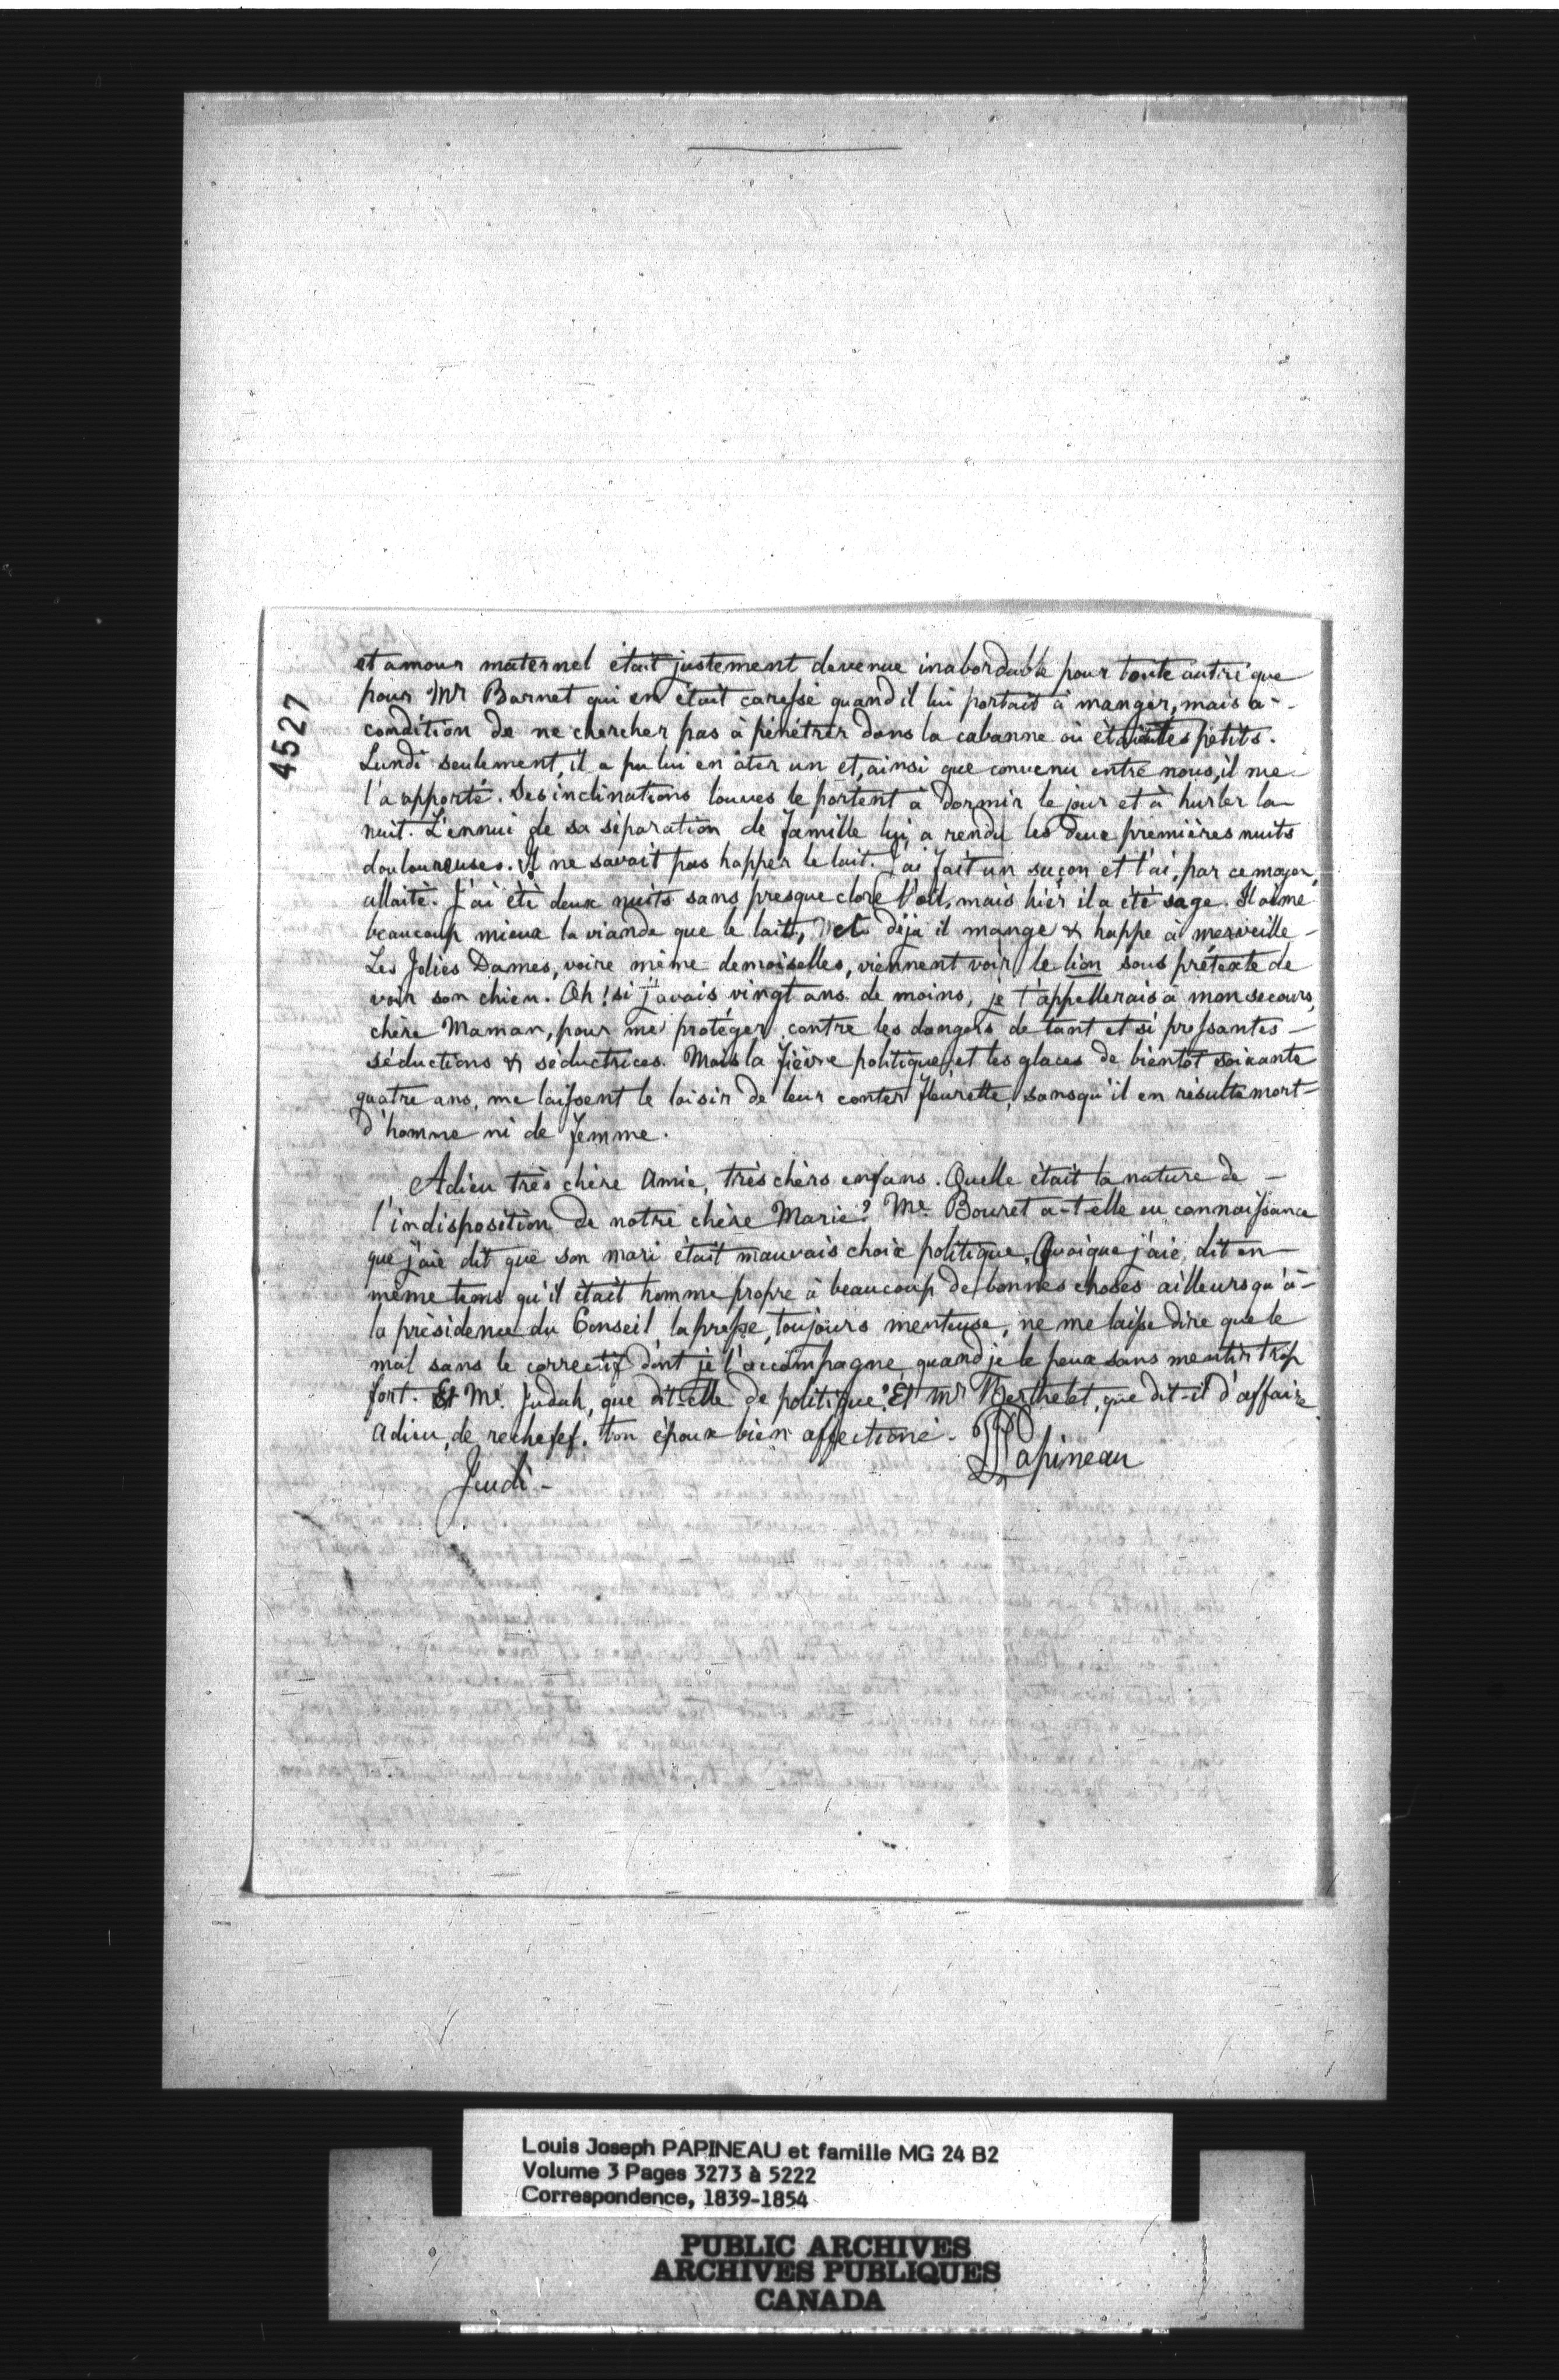 4527
et amour maternel était justement devenue inabordable pour toute autre que
pour Mr Barnet qui en était caressé quand il lui portait à manger, mais à
condition de ne chercher pas à pénétrer dans la cabanne où étaient les petits.
Lundi seulement, il a pu lui en ôter un et, ainsi que convenu entre nous, il me
l'a apporté. Ses inclinations louves le portent à dormir le jour et à hurler la
nuit. L'ennui de sa séparation de famille lui a rendu les deux premières nuits
douloureuses. Il ne savait pas happer le lait. J'ai fait un suçon et l'ai, par ce moyen,
allaité. J'ai été deux nuits sans presque clore l'œil, mais hier il a été sage. Il aime
beaucoup mieux la viande que le lait, et déjà il mange & happe à merveille -
Les Jolies Dames, voire même demoiselles, viennent voir le lion sous prétexte de
voir son chien. Oh! si j'avais vingt ans de moins, je t'appellerais à mon secours,
chère Maman, pour me protéger contre les dangers de tant et si pressantes -
séductions & séductrices. Mais la fièvre politique, et les glaces de bientôt soixante
quatre ans, me laissent le loisir de leur conter fleurette, sans qu'il en résulte mort
d'homme ni de femme.
Adieu très chère Amie, très chers enfans. Quelle était la nature de -
l'indisposition de notre chère Marie? Me. Bouret a-t-elle eu connaissance
que j'aie dit que son mari était mauvais choix politique. Quoique j'aie dit en
même tems qu'il était homme propre à beaucoup de bonnes choses ailleurs qu'à -
la présidence du Conseil, la presse, toujours menteuse, ne me laisse dire que le
mal sans le correctif dont je l'accompagne quand je le peux sans mentir trop
fort. Et Me. Judah, que dit-elle de politique? Et Mr Berthelet, que dit-il d'affaire
adieu, de rechefef. ton époux bien affectioné.
LJPapineau
Jeudi -
Louis Joseph PAPINEAU et famille MG 24 B2
Volume 3 Pages 3273 à 5222
Correspondence, 1839-1854
PUBLIC ARCHIVES
ARCHIVES PUBLIQUES
CANADA